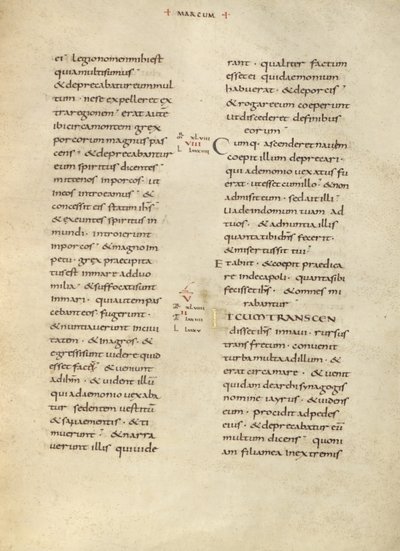 + MARCUM +
ei legio nomen mihi est
quia multi sumus
& deprecabatur eum mul
tum · ne se expelleret ex
tra regionem · erat aute
ibi circa montem grex
porcorum magnus pas
cens · & deprecabantur
eum spiritus dicentes
mitte nos in porcos · ut
in eos introeamus · &
concessit eis statim ihs
& exeuntes spiritus in
mundi · introierunt
in porcos · & magno im
petu · grex praecipita
tus est in mare ad duo
milia · & suffocati sunt
in mari · qui autem pas
cebant eos fugerunt ·
& nuntiaverunt in civi
tatem · & in agros · &
egressi sunt videre quid
esset facti · & veniunt
ad ihm · & vident illu
qui a daemonio vexaba
tur sedentem vestitu
& sanae mentis · & ti
muerunt · & narra
verunt illis qui vide
rant · qualiter factum
esset ei qui daemonium
habuerat · & de porcis ·
& rogare eum coeperunt
ut discederet de finibus
eorum ·
xlviii
VIII
L lxxviiii
Cumq · ascenderet navem
coepit illum deprecari ·
qui a daemonio vexatus fu
erat · ut esset cum illo · & non
admisit eum · sed ait illi
vade in domum tuam ad
tuos · & adnuntia illis
quanta tibi dns fecerit ·
& misertus sit tui ·
Et abiit · & coepit praedica
re in decapoli · quanta sibi
fecisset ihs · & omnes mi
rabantur
V
xlviiii
II
L lxxv
ET CUM TRANSCEN
disset ihs in navi · rursus
trans fretum · convenit
turba multa ad illum · &
erat circa mare · & venit
quidam de archisynagogis
nomine iayrus · & videns
eum · procidit ad pedes
eius · & deprecabatur eu
multum dicens · quoni
am filia mea in extremis